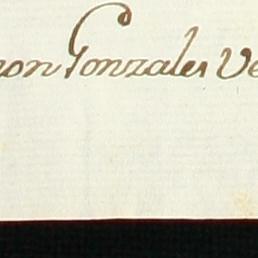 ron Gonzales Ve